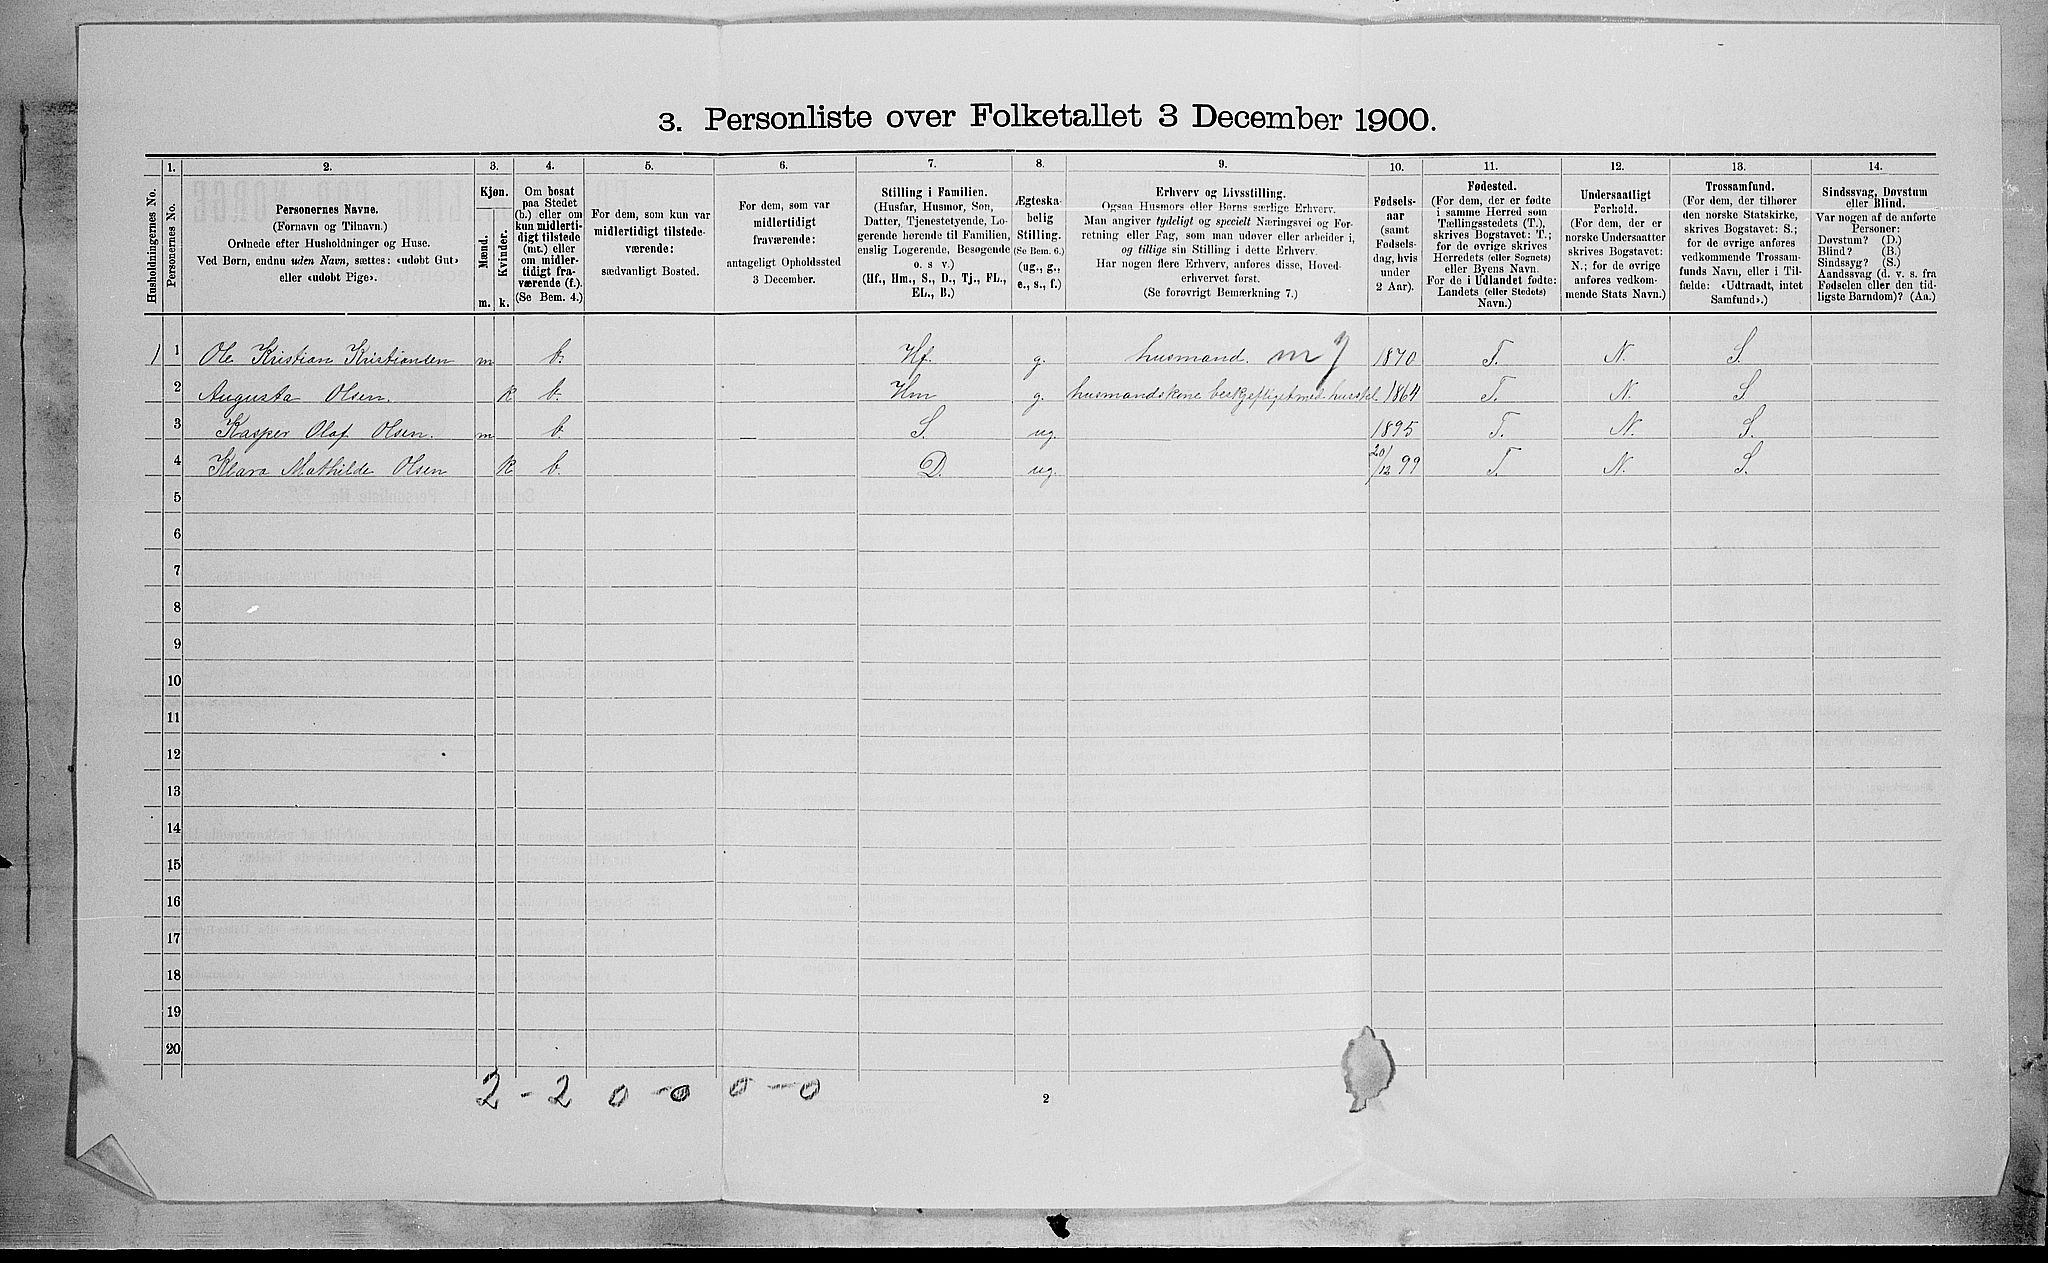 3. Personliste over Folketallet 3 December 1900.
1. 2. 3. 4. 5. 6. 7. 8. 9. 10. 11. 12. 13. 14.
Husholdningernes No.
Personernes No.
Personernes Navne.
(Fornavn og Tilnavn.)
Ordnede efter Husholdninger og Huse.
Ved Børn, endnu uden Navn, sættes: «udøbt Gut»
eller «udøbt Pige».
Kjøn.
Mænd.
Kvinder.
m. k.
Om bosat
paa Stedet
(b.) eller om
kun midlerti-
digt tilstede
(mt.) eller
om midler-
tidigt fra-
værende (f.).
(Se Bem. 4.)
For dem, som kun var
midlertidigt tilstede-
værende:
sædvanligt Bosted.
For dem, som var
midlertidigt
fraværende:
antageligt Opholdssted
3 December.
Stilling i Familien.
(Husfar, Husmor, Søn,
Datter, Tjenestetyende, Lo-
gerende hørende til Familien,
enslig Logerende, Besøgende
o. s v.)
(Hf., Hm., S., D., Tj., FL.,
EL., B.)
Ægteska-
belig
Stilling.
(Se Bem. 6.)
(ug., g.,
e., s., f.)
Erhverv og Livsstilling.
Ogsaa Husmors eller Børns særlige Erhverv.
Man angiver tydeligt og specielt Næringsvei og For-
retning eller Fag, som man udøver eller arbeider i,
og tillige sin Stilling i dette Erhverv.
Har nogen flere Erhverv, anføres disse, Hoved-
erhvervet først.
(Se forøvrigt Bemærkning 7.)
Fødsels-
aar
(samt
Fødsels-
dag, hvis
under
2 Aar).
Fødested.
(For dem, der er fødte
i samme Herred som
Tællingsstedets (T.),
skrives Bogstavet: T.;
for de øvrige skrives
Herredets (eller Sognets)
eller Byens Navn.
For de i Udlandet fødte:
Landets (eller Stedets)
Navn.)
Undersaatligt
Forhold.
(For dem, der er
norske Undersaatter
skrives Bogstavet:
N.; for de øvrige
anføres vedkom-
mende Stats Navn.)
Trossamfund.
(For dem, der tilhører
den norske Statskirke,
skrives Bogstavet: S.;
for de øvrige anføres
vedkommende Trossam-
funds Navn, eller i Til-
fælde: «Udtraadt, intet
Samfund».)
Sindssvag, Døvstum
eller Blind.
Var nogen af de anførte
Personer:
Døvstum? (D.)
Blind? (B.)
Sindssyg? (S.)
Aandssvag (d. v. s. fra
Fødselen eller den tid-
ligste Barndom)? (Aa.)
1) 1 Ole Kristian Kristiansen m b. Hf. g. husmand. 1870 T. N. S.
2 Augusta Olsen. k b. Hm g. husmandskone 1864 T. N. S.
3 Kasper Olaf Olsen. m b. S. ug. 1895 T. N. S.
4 Klara Mathilde Olsen k b. D. ug. 20/12 99 T. N. S.
5
6
7
8
9
10
11
12
13
14
15
16
17
18
19
20
2 - 2 0 - 0 0 - 0
2